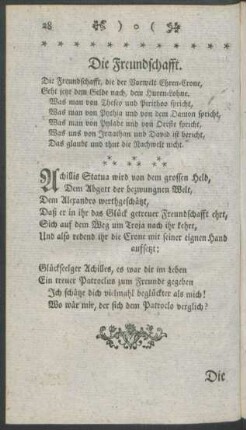 28 ) o (
Die Freundschafft.
Die Freundschafft, die der Vorwelt Ehren-Crone,
Geht jetzt dem Gelde nach, dem Huren-Lohne.
Was man von Theseo und Perithoo spricht,
Was man von Pythia und von dem Damon spricht,
Was man von Pylade und von Oreste spricht,
Was uns von Jonathan und David ist bericht,
Das glaubt und thut die Nachwelt nicht.
Achillis Statua wird von dem grossen Held,
Dem Abgott der bezwungnen Welt,
Dem Alexandro werthgeschätzt,
Daß er in ihr das Glück getreuer Freundschafft ehrt,
Sich auf dem Weg um Troja nach ihr kehrt,
Und also redend ihr die Crone mit seiner eignen Hand
aufsetzt:
Glückseelger Achilles, es war dir im Leben
Ein treuer Patroclus zum Freunde gegeben
Ich schätze dich vielmahl beglückter als mich!
Wo wär mir, der sich dem Patroclo verglich?
Die